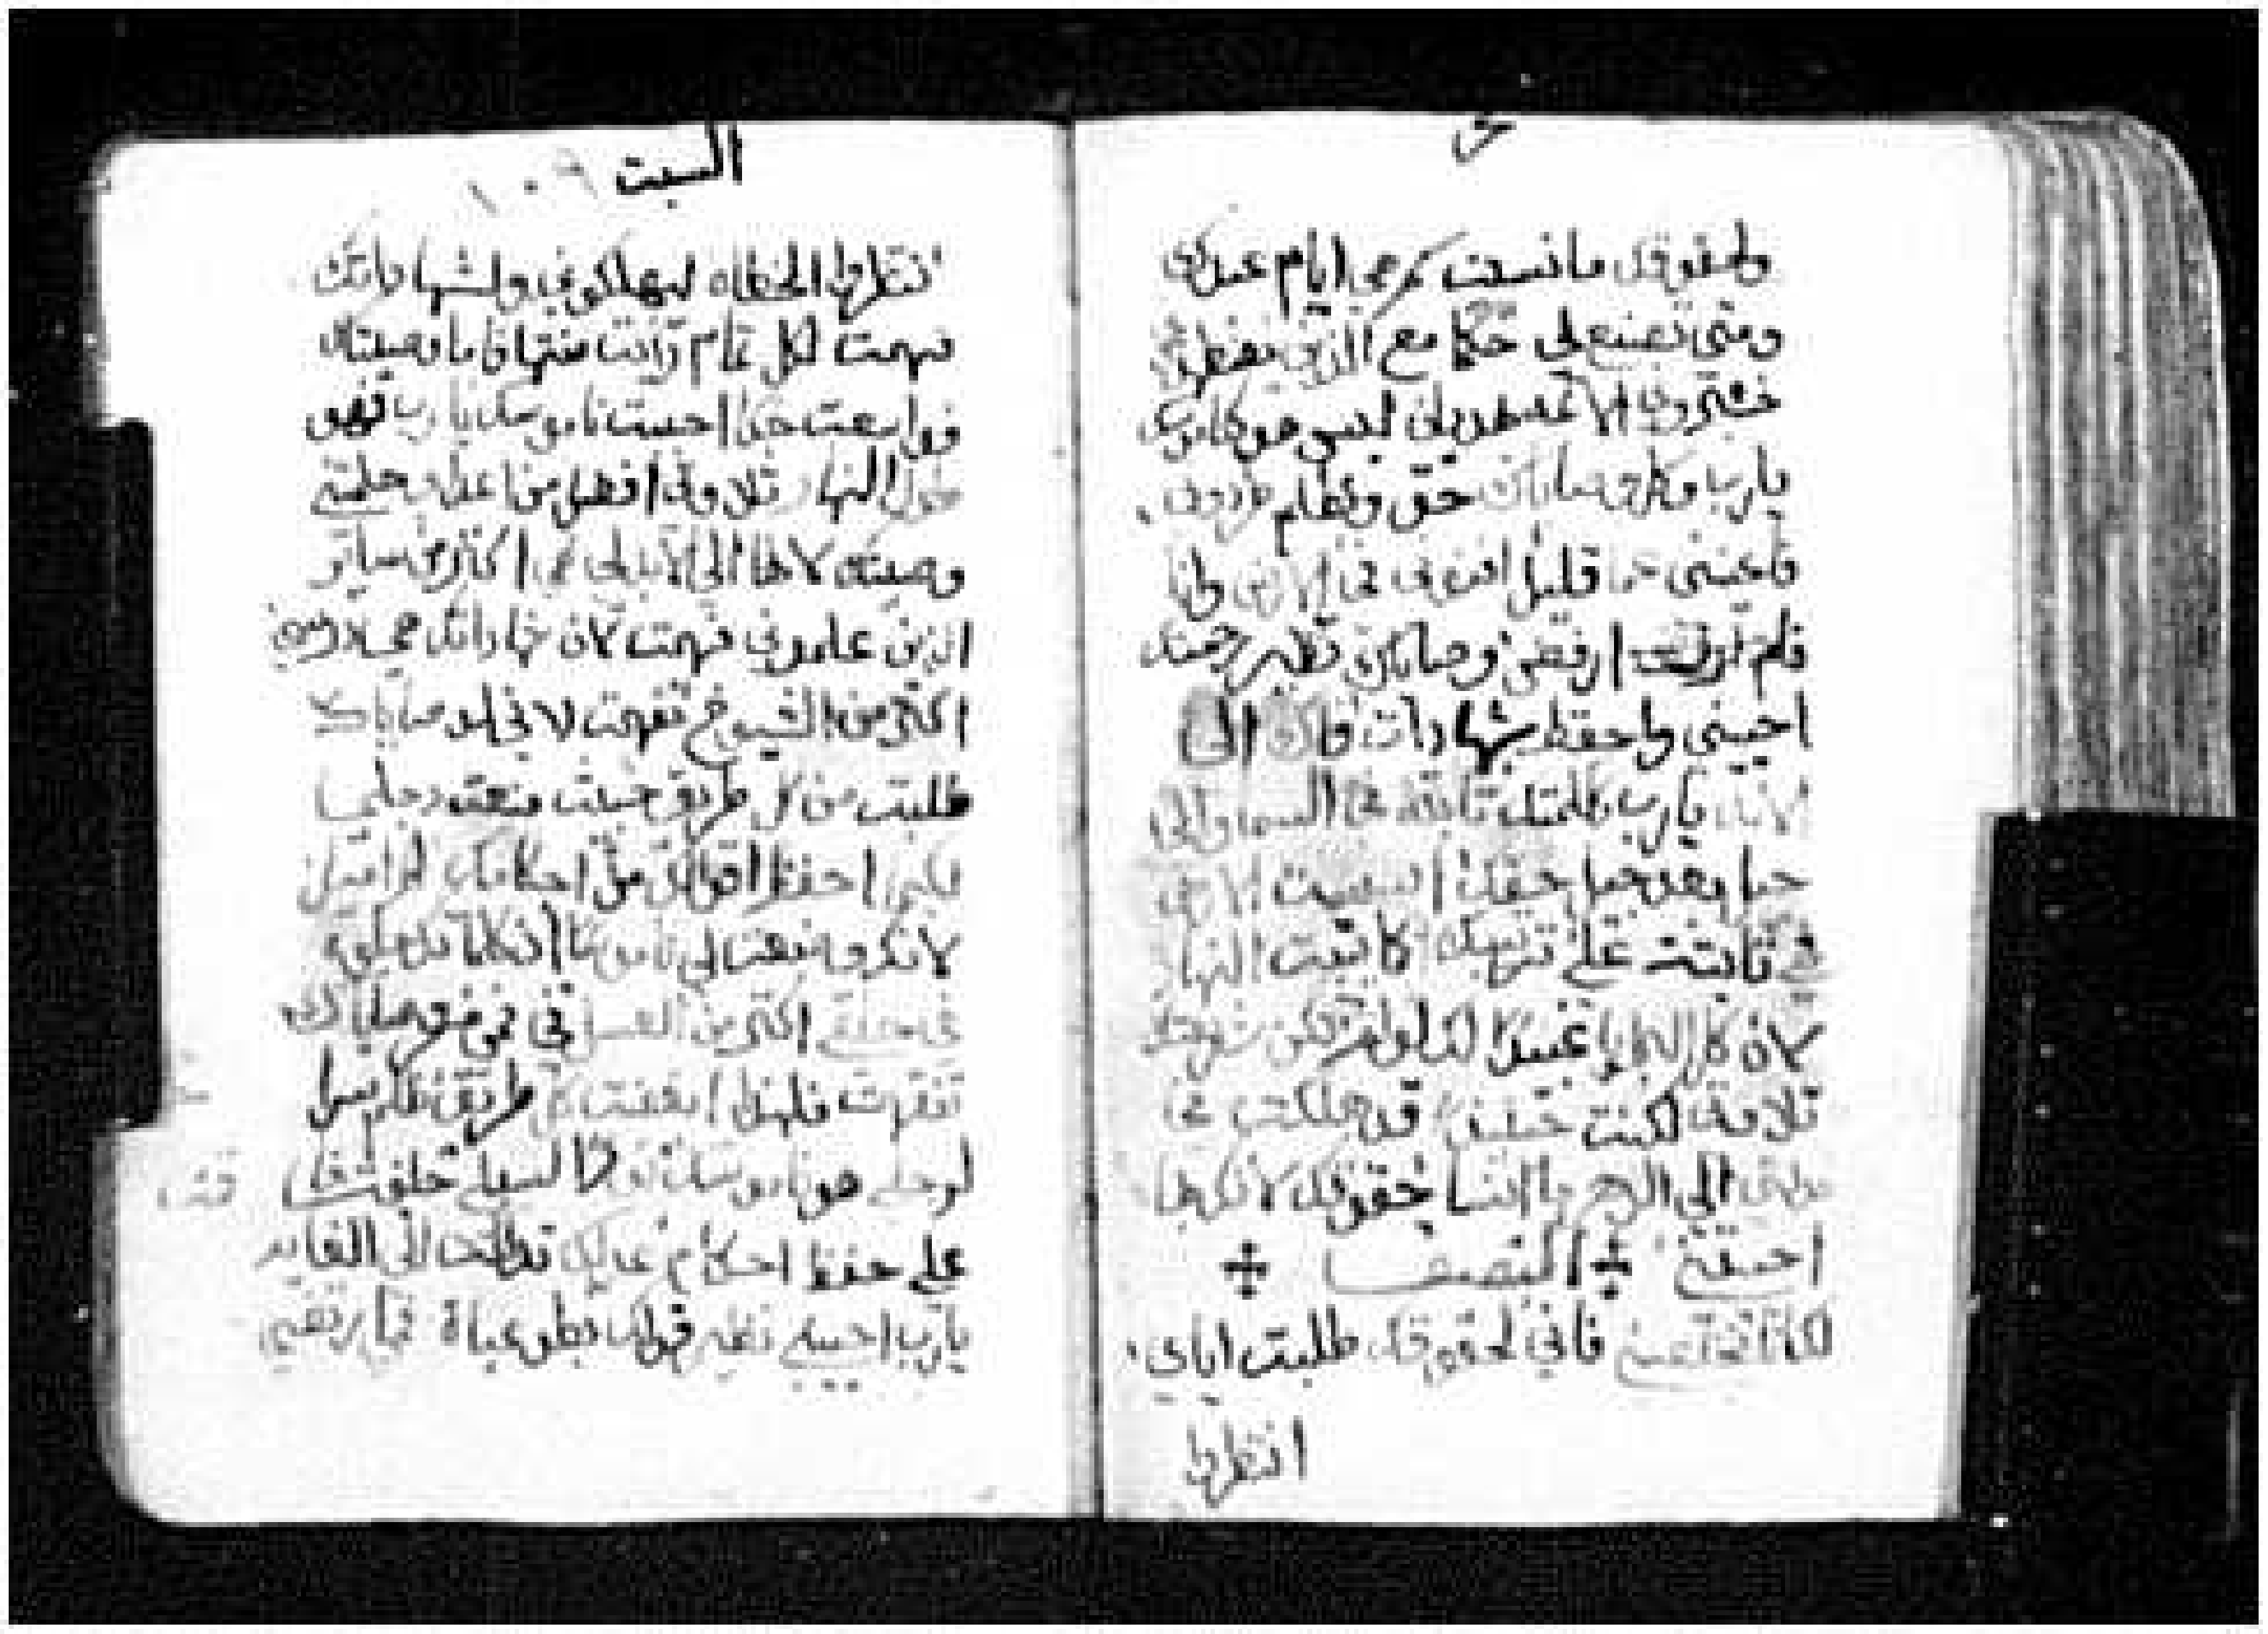 وحقوقك ما نسيت كم هي ايام عبدك
ومتى تصنع لي حكما مع الذين يضطهدوني
يا رب وكل وصاياك حق وبظلم طردوني
فاعيني عما قليل افنوني في الارض وانا
فلم ارفض وصاياك نظير رحمتك
احييني واحفظ شهادات فاك الى
الابد يا رب كلمتك ثابته في السما والى
جيل بعد جيل حقك اسست الارض
فهي ثابته على ترتيبك كما ثبت النهار
لان كل البرايا عبيدك لو لم تكن شريعتك
تلاوتي لكنت حينيذ قد هلكت في
مذلتي الى الدهر ما انسا حقوقك لانك بها
احييتني النصف
لك انا فخلصني فاني لحقوقك طلبت اياي
انتظروا
السبت ١٠٩
انتظروا الخطاه ليهلكوني ولشهاداتك
فهمت لكل تمام رايت منتها فاما وصيتك
فواسعت جدا احببت ناموسك يا رب فهو
طول النهار تلاوتي افضل من اعداي علمتني
وصيتك لانها الى الابد لي هي اكثر من ساير
الذين علموني فهمت لان شهاداتك هي درسي
اكثر من الشيوخ تفهمت لاني لوصاياك
طلبت من كل طريق خبيث منعت رجلي
لكيما احفظ اقوالك من احكامك لم اميل
لانك وضعت لي ناموسا ان كلماتك حلوه
في حلقي اكثر من العسل في فمي من وصاياك
تفهمت فلهذا ابغضت كل طريق ظلم سراج
لرجلي هو ناموسك ونور لسبلي حلفت فاقمت
على حفظ احكام عدلك تذللت الى الغايه
يا رب احييني نظير قولك